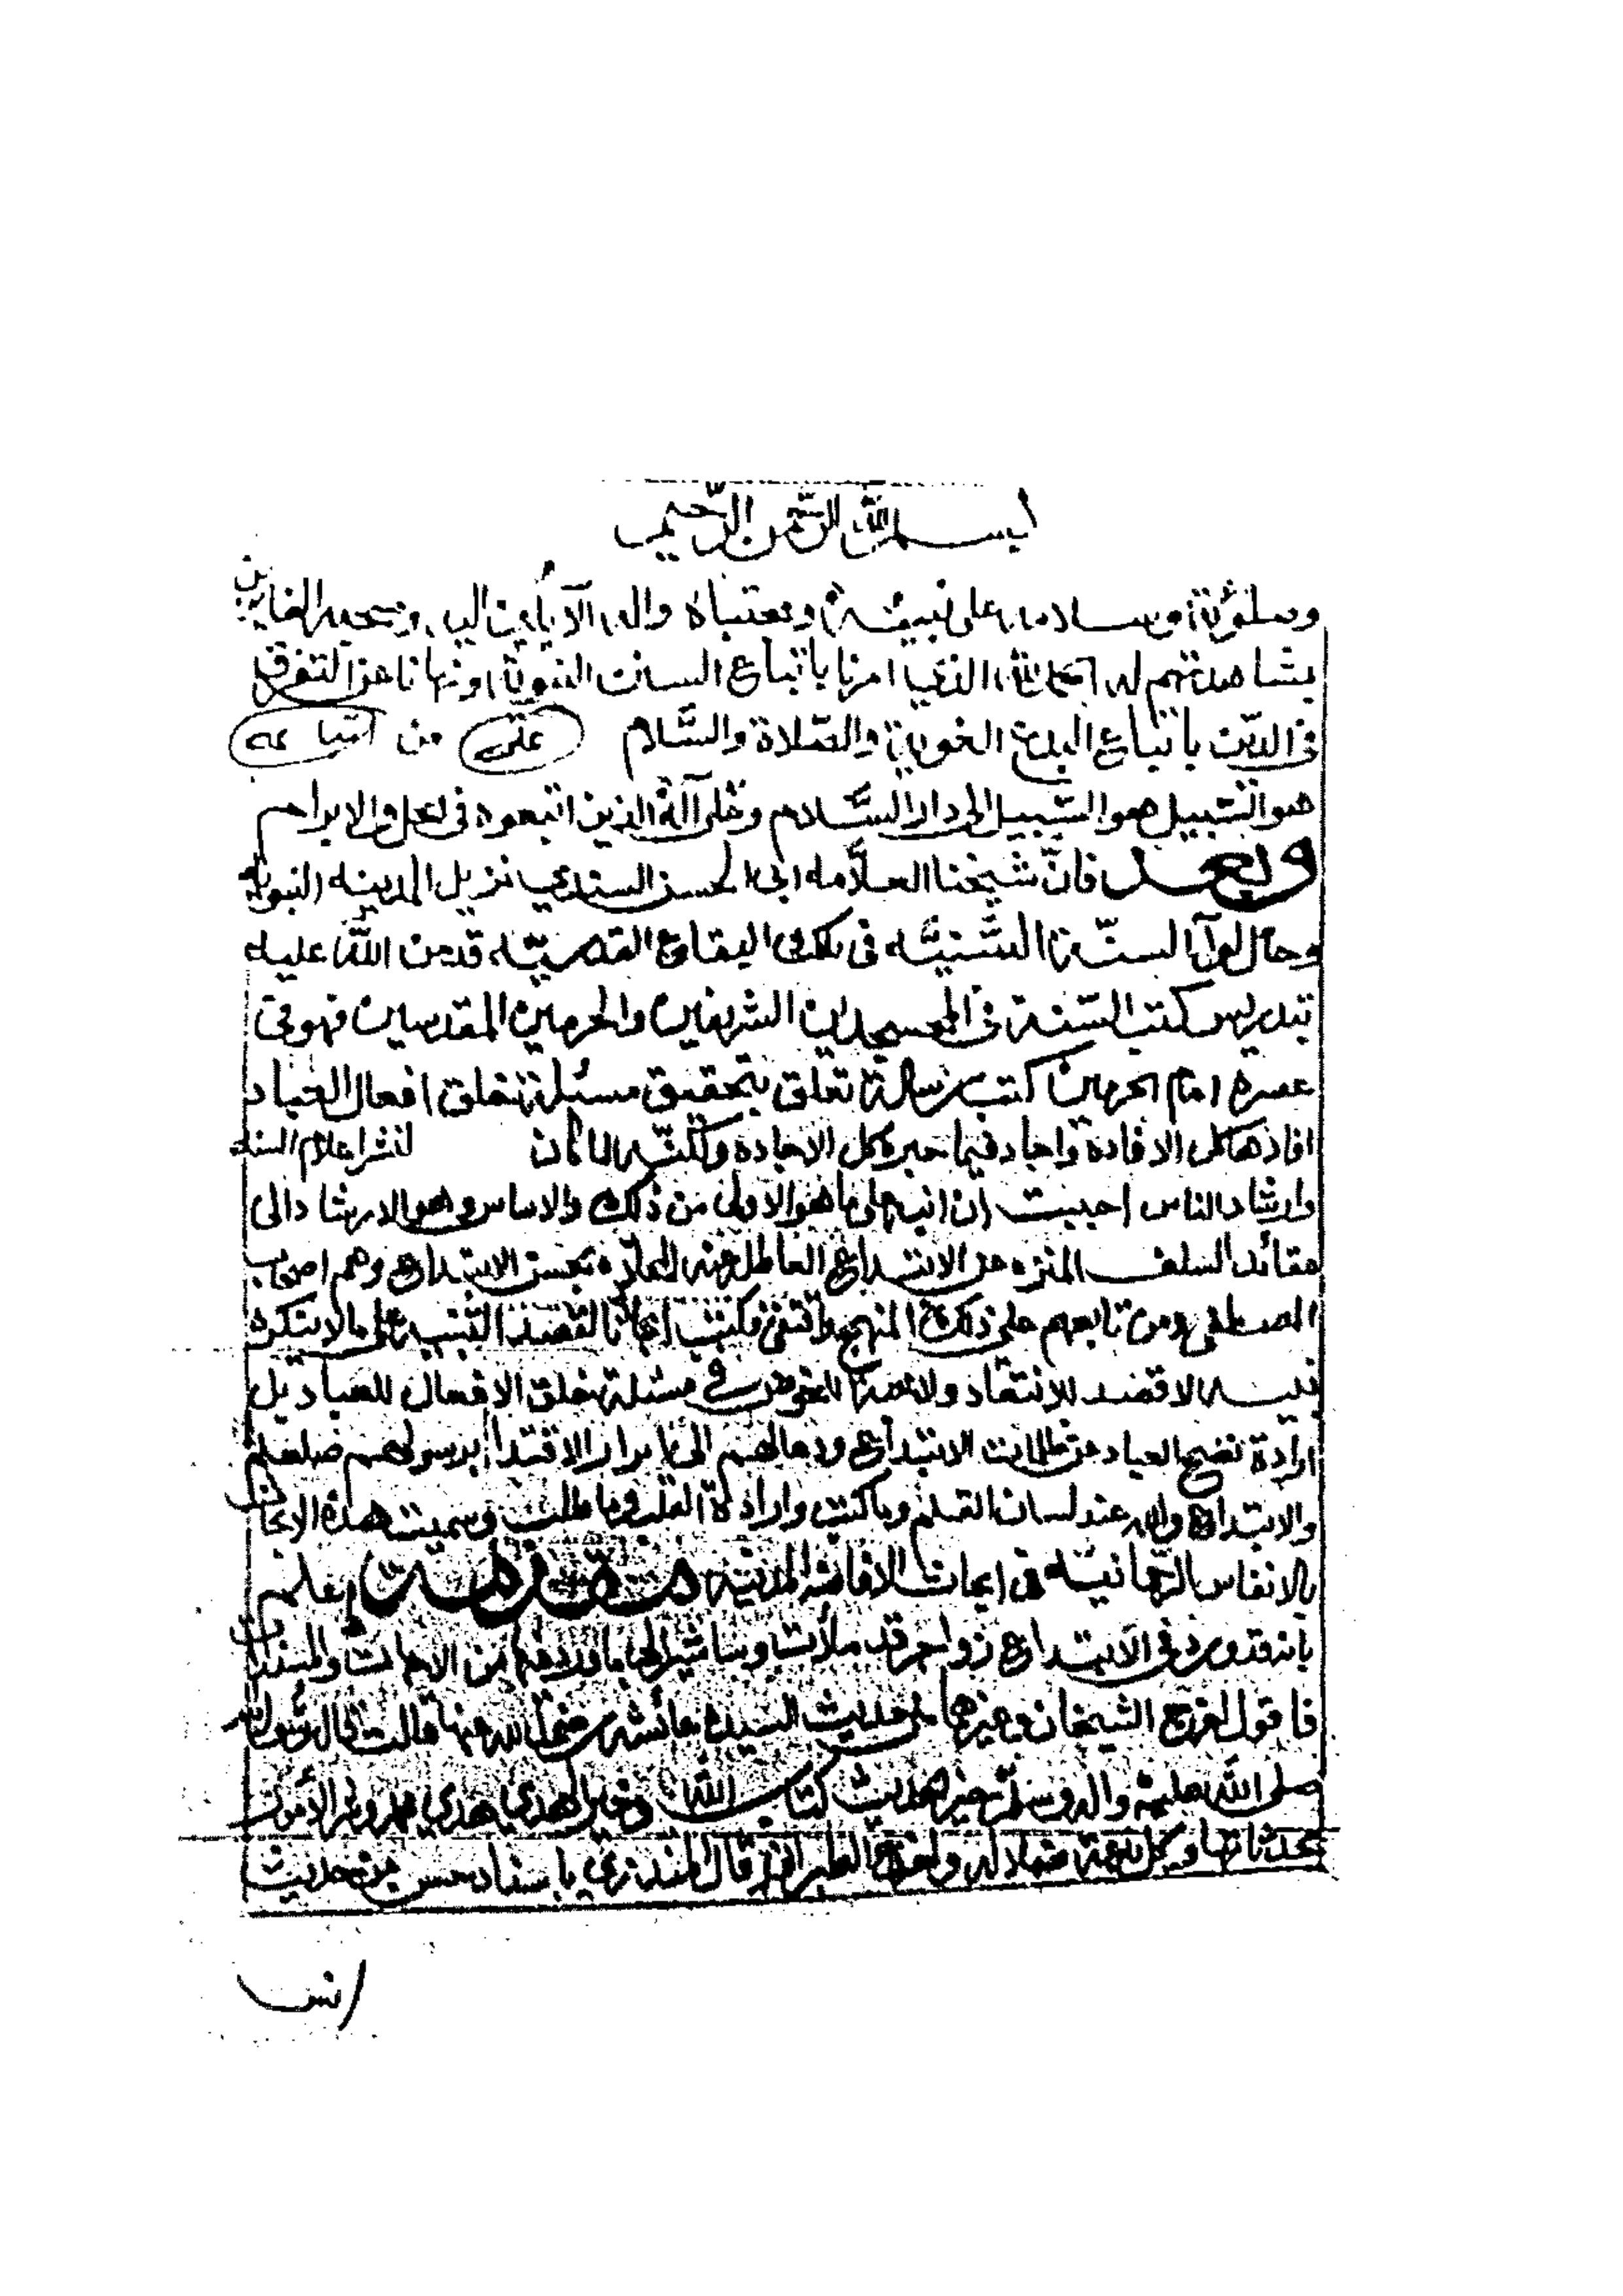 بسم الله الرحمن الرحيم
وصلوته وسلامه على نبيه ومجتباه واله الآيلين اليه وصحبه الفايزين
بشاهدتهم له احمد الله الذي امرنا باتباع السنن النبوية ونهانا عن التفرق
في الدين باتباع البدع الغوية والصلاة والسلام على من اتباعه
هو السبيل الى دار السلام وعلى آله الذين اتبعوه في الحل والابرام
وبعد فان شيخنا العلامه ابى الحسن السندي نزيل المدينه النبوية
وحامل لوآ السنة السنيه في تلك البقاع القدسيه قد من الله عليه
بتدريس كتب السنة في المسجدين الشريفين والحرمين المقدسين فهو في
عصره امام الحرمين كتب رسالة تعلق بتحقيق مسئلة خلق افعال العباد
افاد كل الافادة واجاد فيما حبره كل الاجاده ولكنه لما كان لنشر اعلام السنه
وارشاد الناس احببت ان انبه على ما هو الاولى من ذلك والاساس وهو الارشاد الى
عقائد السلف المنزه عن الابتداع العاطل عنه بحسن الاتباع وهم اصحاب
المصطفى ومن تابعهم على ذلك المنهج واقتفى فكتب ابحاثا لقصد التنبيه على مالا ينكره
فيه لا قصد للانتقاد ولا للخوض في مسئلة خلق الافعال للعباد بل
ارادة نصح العباد عن ظلمات الابتداع ودعائهم الى الاقتدا برسولهم صلعم
والله عند لسان القلم وما كتب وارادة القلب وما طلب وسميت هذه الابحاث
بالانفاس الرحمانيه في ابحاث الافاضة المدنيه مقدمة اعلم
بانه قد ورد في الابتداع زواجر قد ملأت من الامهات والمسندات
فاقول اخرج الشيخان وغيرهما من حديث السيدة عائشه رضي الله عنها قالت قال رسول الله
صلى الله عليه واله وسلم خير الحديث كتاب الله وخير الهدي هدي محمد وشر الأمور
محدثاتها وكل بدعة ضلالة واخرج الطبراني قال المنذري باسناد حسن من حديث
انس